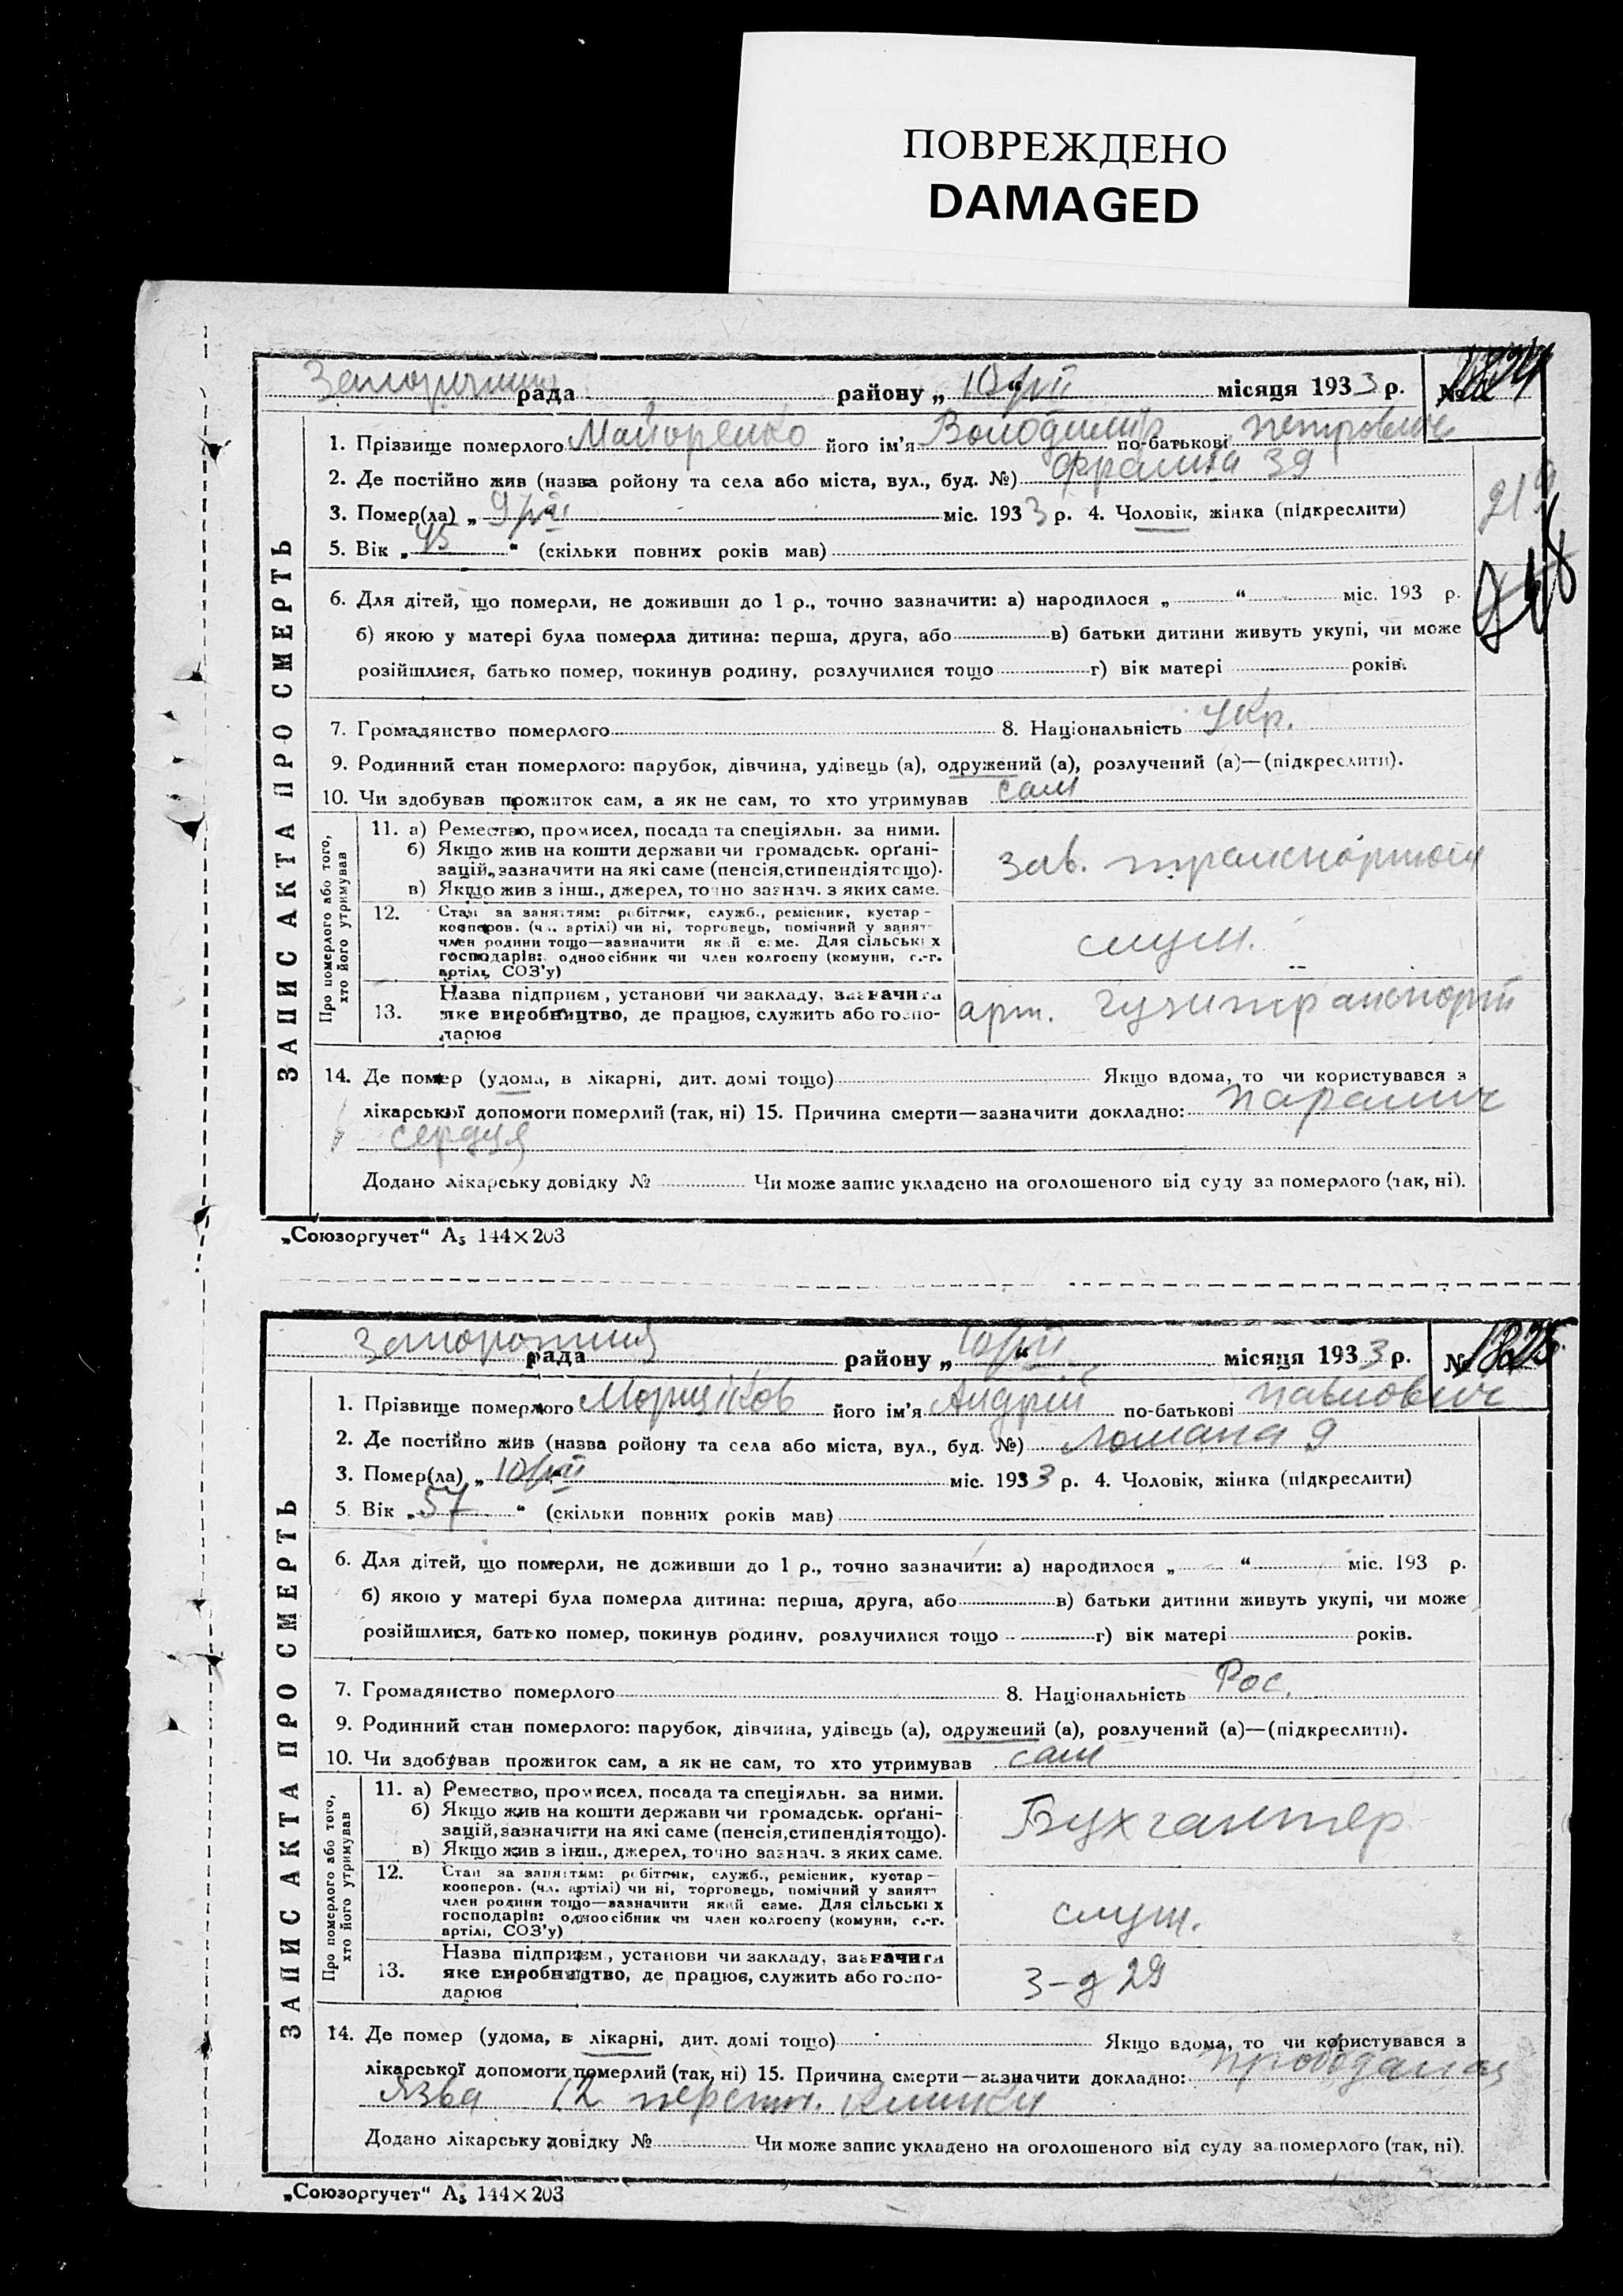 ПОВРЕЖДЕНО
DAMAGED
рада району „10/VII“ місяця 1933 р. № 1824
1. Прізвище померлого Майоренко його ім'я Володимир по-батькові Петрович
2. Де постійно жив (назва ройону та села або міста, вул., буд. №) Франка 39
3. Помер(ла) „9/VII“ міс. 1933 р. 4. Чоловік, жінка (підкреслити)
5. Вік „45“ (скільки повних років мав)
6. Для дітей, що померли, не доживши до 1 р., точно зазначити: а) народилося „ “ міс. 193 р.
б) якою у матері була померла дитина: перша, друга, або в) батьки дитини живуть укупі, чи може
розійшлися, батько помер, покинув родину, розлучилися тощо г) вік матері років.
7. Громадянство померлого 8. Національність Укр.
9. Родинний стан померлого: парубок, дівчина, удівець (а), одружений (а), розлучений (а)—(підкреслити).
10. Чи здобував прожиток сам, а як не сам, то хто утримував сам
ЗАПИС АКТА ПРО СМЕРТЬ
Про померлого або того,
хто його утримував
11. а) Ремество, промисел, посада та спеціяльн. за ними.
б) Якщо жив на кошти держави чи громадськ. орґані-
зацій, зазначити на які саме (пенсія, стипендія тощо).
в) Якщо жив з інш., джерел, точно зазнач. з яких саме.
зав. транспортом
12. Стан за заняттям: робітник, служб., ремісник, кустар—
кооперов. (чл. артілі) чи ні, торговець, помічний у занятт
член родини тощо—зазначити який саме. Для сільських
господарів: одноосібник чи член колгоспу (комуни, с.-г.
артілі, СОЗ'у)
служ.
13. Назва підприєм, установи чи закладу, зазначити
яке виробництво, де працює, служить або госпо-
дарює
арт.
14. Де помер (удома, в лікарні, дит. домі тощо) Якщо вдома, то чи користувався з
лікарської допомоги померлий (так, ні) 15. Причина смерти—зазначити докладно: параліч
серця
Додано лікарську довідку № Чи може запис укладено на оголошеного від суду за померлого (так, ні).
„Союзоргучет“ А₅ 144×203
рада району „10/VII“ місяця 1933 р. № 1825
1. Прізвище померлого його ім'я Андрій по-батькові Павлович
2. Де постійно жив (назва ройону та села або міста, вул., буд. №) 9
3. Помер(ла) „10/VII“ міс. 1933 р. 4. Чоловік, жінка (підкреслити)
5. Вік „57“ (скільки повних років мав)
6. Для дітей, що померли, не доживши до 1 р., точно зазначити: а) народилося „ “ міс. 193 р.
б) якою у матері була померла дитина: перша, друга, або в) батьки дитини живуть укупі, чи може
розійшлися, батько помер, покинув родину, розлучилися тощо г) вік матері років.
7. Громадянство померлого 8. Національність Рос.
9. Родинний стан померлого: парубок, дівчина, удівець (а), одружений (а), розлучений (а)—(підкреслити).
10. Чи здобував прожиток сам, а як не сам, то хто утримував сам
ЗАПИС АКТА ПРО СМЕРТЬ
Про померлого або того,
хто його утримував
11. а) Ремество, промисел, посада та спеціяльн. за ними.
б) Якщо жив на кошти держави чи громадськ. орґані-
зацій, зазначити на які саме (пенсія, стипендія тощо).
в) Якщо жив з інш., джерел, точно зазнач. з яких саме.
Бухгалтер
12. Стан за заняттям: робітник, служб., ремісник, кустар—
кооперов. (чл. артілі) чи ні, торговець, помічний у занятт
член родини тощо—зазначити який саме. Для сільських
господарів: одноосібник чи член колгоспу (комуни, с.-г.
артілі, СОЗ'у)
служ.
13. Назва підприєм, установи чи закладу, зазначити
яке виробництво, де працює, служить або госпо-
дарює
З-д 29
14. Де помер (удома, в лікарні, дит. домі тощо) Якщо вдома, то чи користувався з
лікарської допомоги померлий (так, ні) 15. Причина смерти—зазначити докладно:
язва 12 перстн. кишки
Додано лікарську довідку № Чи може запис укладено на оголошеного від суду за померлого (так, ні).
„Союзоргучет“ А₅ 144×203